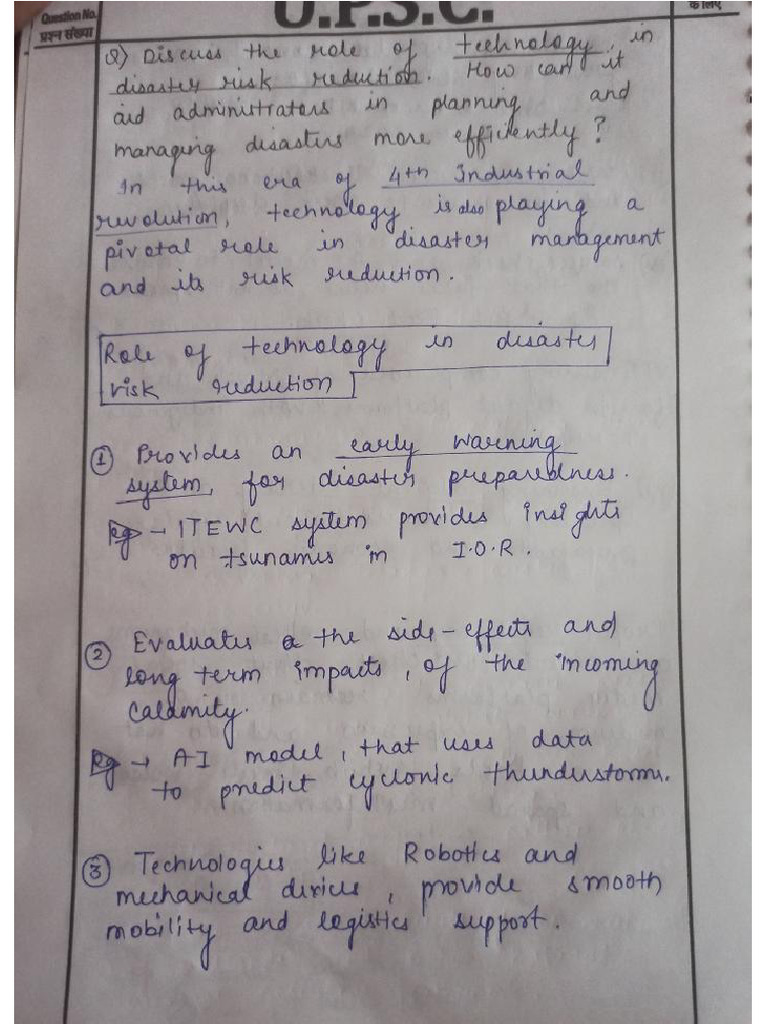 Question No.
प्रश्न संख्या
U.P.S.C.
के लिए
Q) Discuss the role of technology, in
disaster risk reduction. How can it
aid administrators in planning and
managing disasters more efficiently?
In this era of 4th Industrial
revolution, technology is also playing a
pivotal role in disaster management
and its risk reduction.
Role of technology in disaster
risk reduction
① Provides an early warning
system, for disaster preparedness.
eg → ITEWC system provides insights
on tsunamis in I.O.R.
② Evaluates the side-effects and
long term impacts, of the incoming
calamity.
eg → AI model, that uses data
to predict cyclonic thunderstorms.
③ Technologies like Robotics and
mechanical devices, provide smooth
mobility and logistics support.